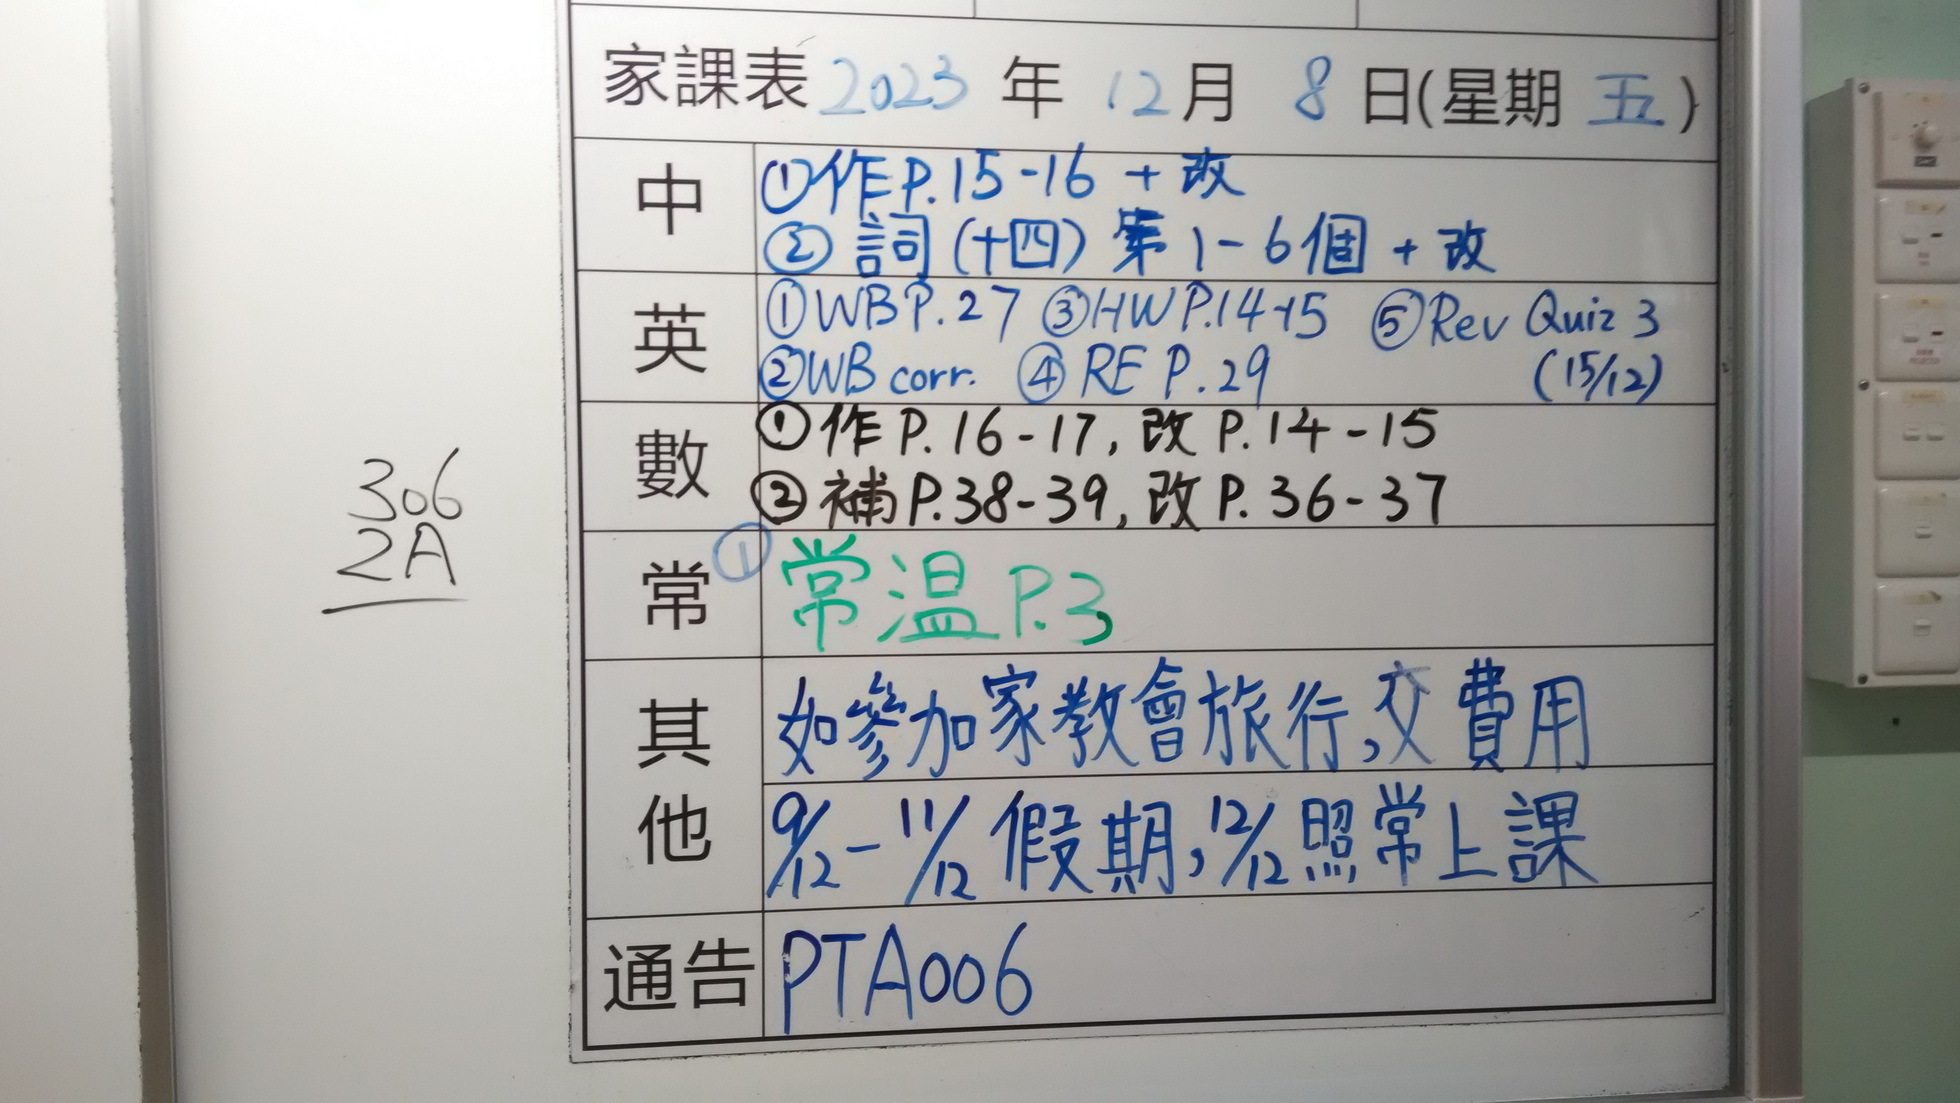 家課表 2023 年 12 月 8 日(星期 五)
中
①作P.15-16 + 改
②詞(十四)第1-6個 + 改
英
①WB P.27 ③HW P.14-15 ⑤Rev Quiz 3
②WB corr. ④RE P.29 (15/12)
數
①作P.16-17, 改P.14-15
②補P.38-39, 改P.36-37
常
①常温P.3
其他
如參加家教會旅行,交費用
9/12-11/12假期,12/12照常上課
通告
PTA006
306
2A